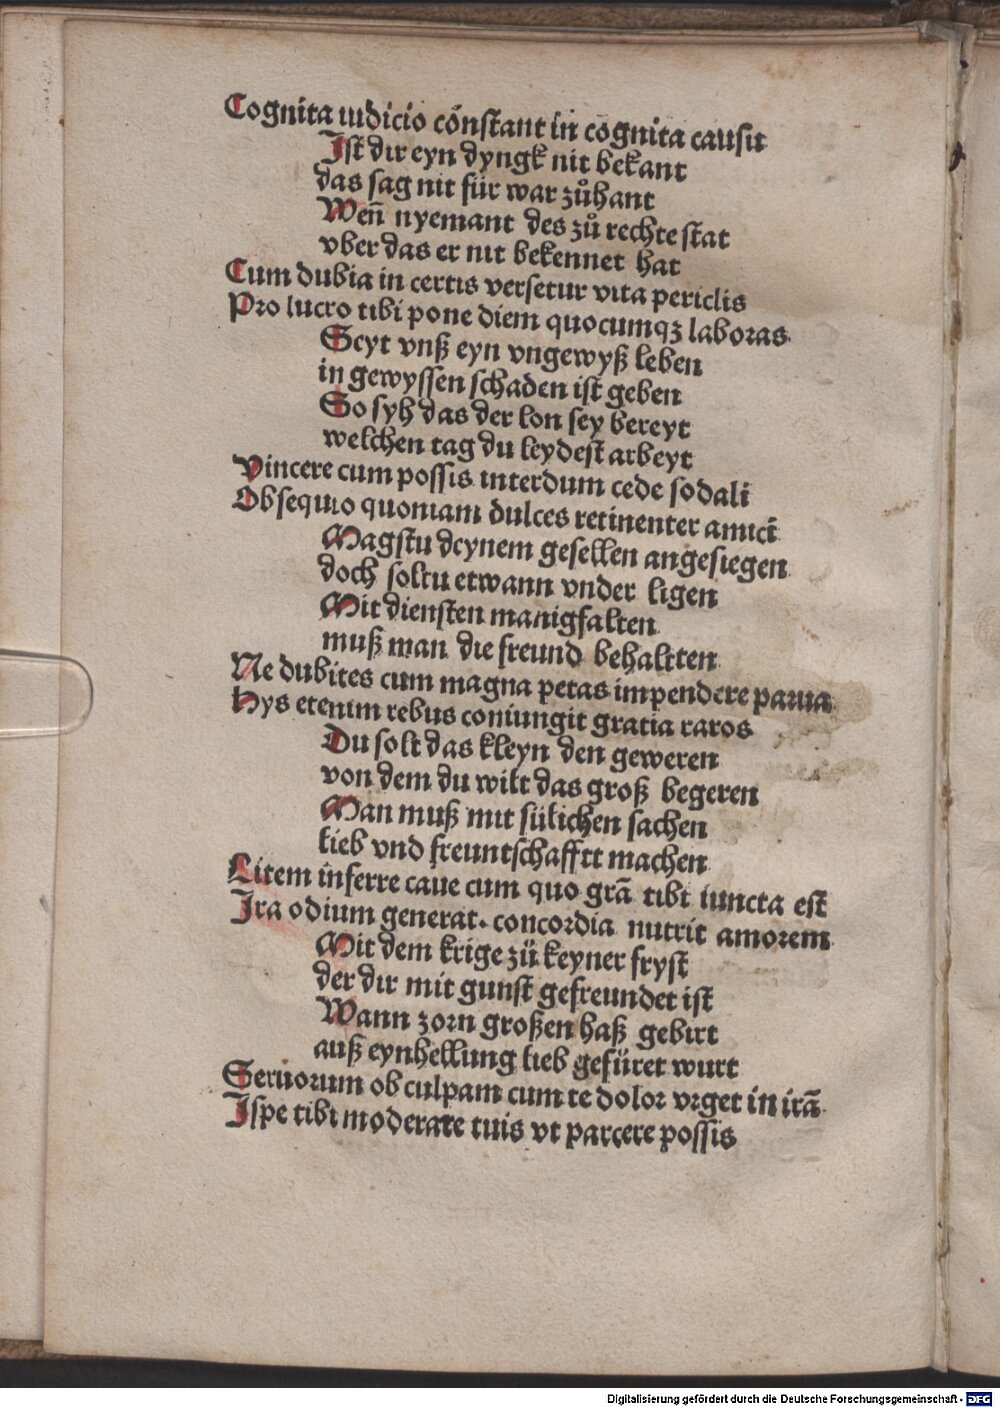 Cognita iudicio cōnstant in cognita causis
Ist dir eyn dyngk nit bekant
das sag nit für war zůhant
Weñ nyemant des zů rechte stat
vber das er nit bekennet hat
Cum dubia in certis versetur vita periclis
Pro lucro tibi pone diem quocumqꝫ laboras.
Seyt vnß eyn vngewyß leben
in gewyssen schaden ist geben
So syh das der lon sey bereyt
welchen tag du leydest arbeyt
Vincere cum possis interdum cede sodali
Obsequio quoniam dulces retinenter amici
Magstu deynem gesellen angesiegen
doch soltu etwann vnder ligen
Mit diensten manigfalten
muß man die freund behaltten
Ne dubites cum magna petas impendere parua
Hys etenim rebus coniungit gratia raros
Du solt das kleyn den geweren
von dem du wilt das groß begeren
Man muß mit sülichen sachen
lieb vnd freuntschafftt machen
Litem inferre caue cum quo grā tibi iuncta est
Ira odium generat. concordia nutrit amorem
Mit dem krige zü keyner fryst
der dir mit gunst gefreundet ist
Wann zorn großen haß gebirt
auß eynhellung lieb gefüret wurt
Seruorum ob culpam cum te dolor vrget in irā
Ispe tibi moderate tuis vt parcere possis
Digitalisierung gefördert durch die Deutsche Forschungsgemeinschaft - DFG